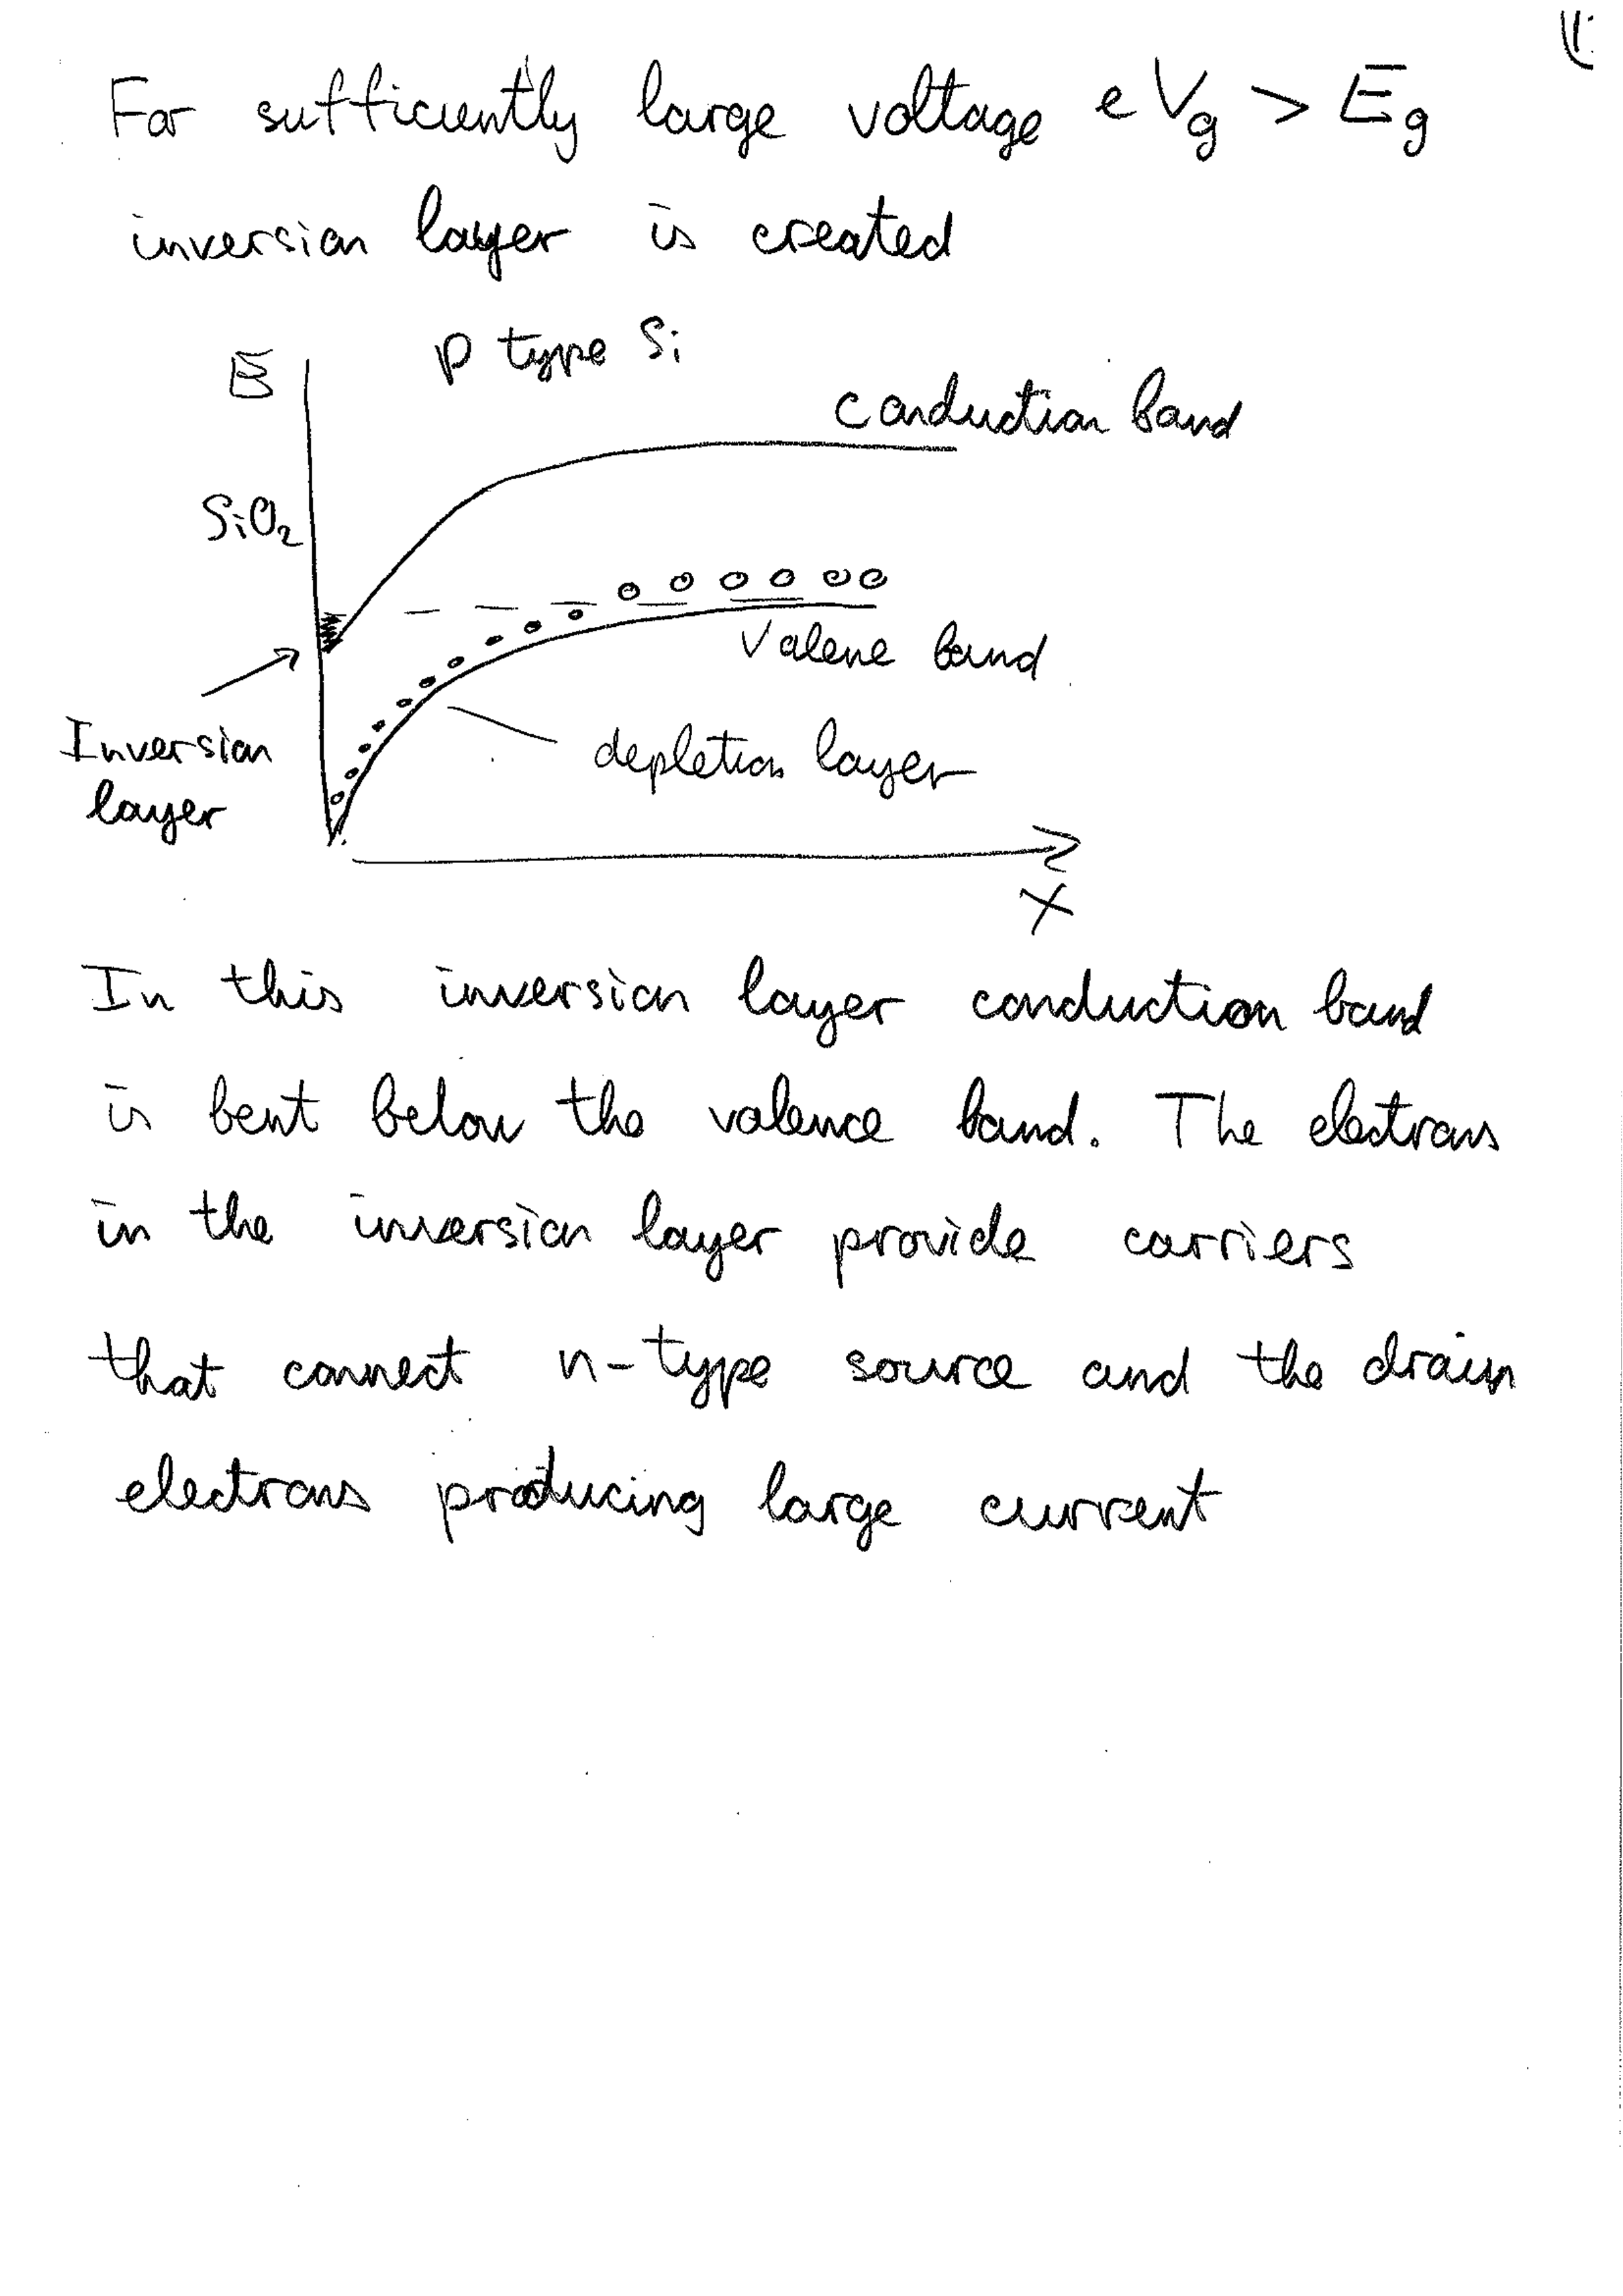 For sufficiently large voltage eVg > Eg
inversion layer is created
p type Si
E
conduction band
SiO2
Valene band
Inversion
layer
depletion layer
x
In this inversion layer conduction band
is bent below the valence band. The electrons
in the inversion layer provide carriers
that connect n-type source and the drain
electrons producing large current